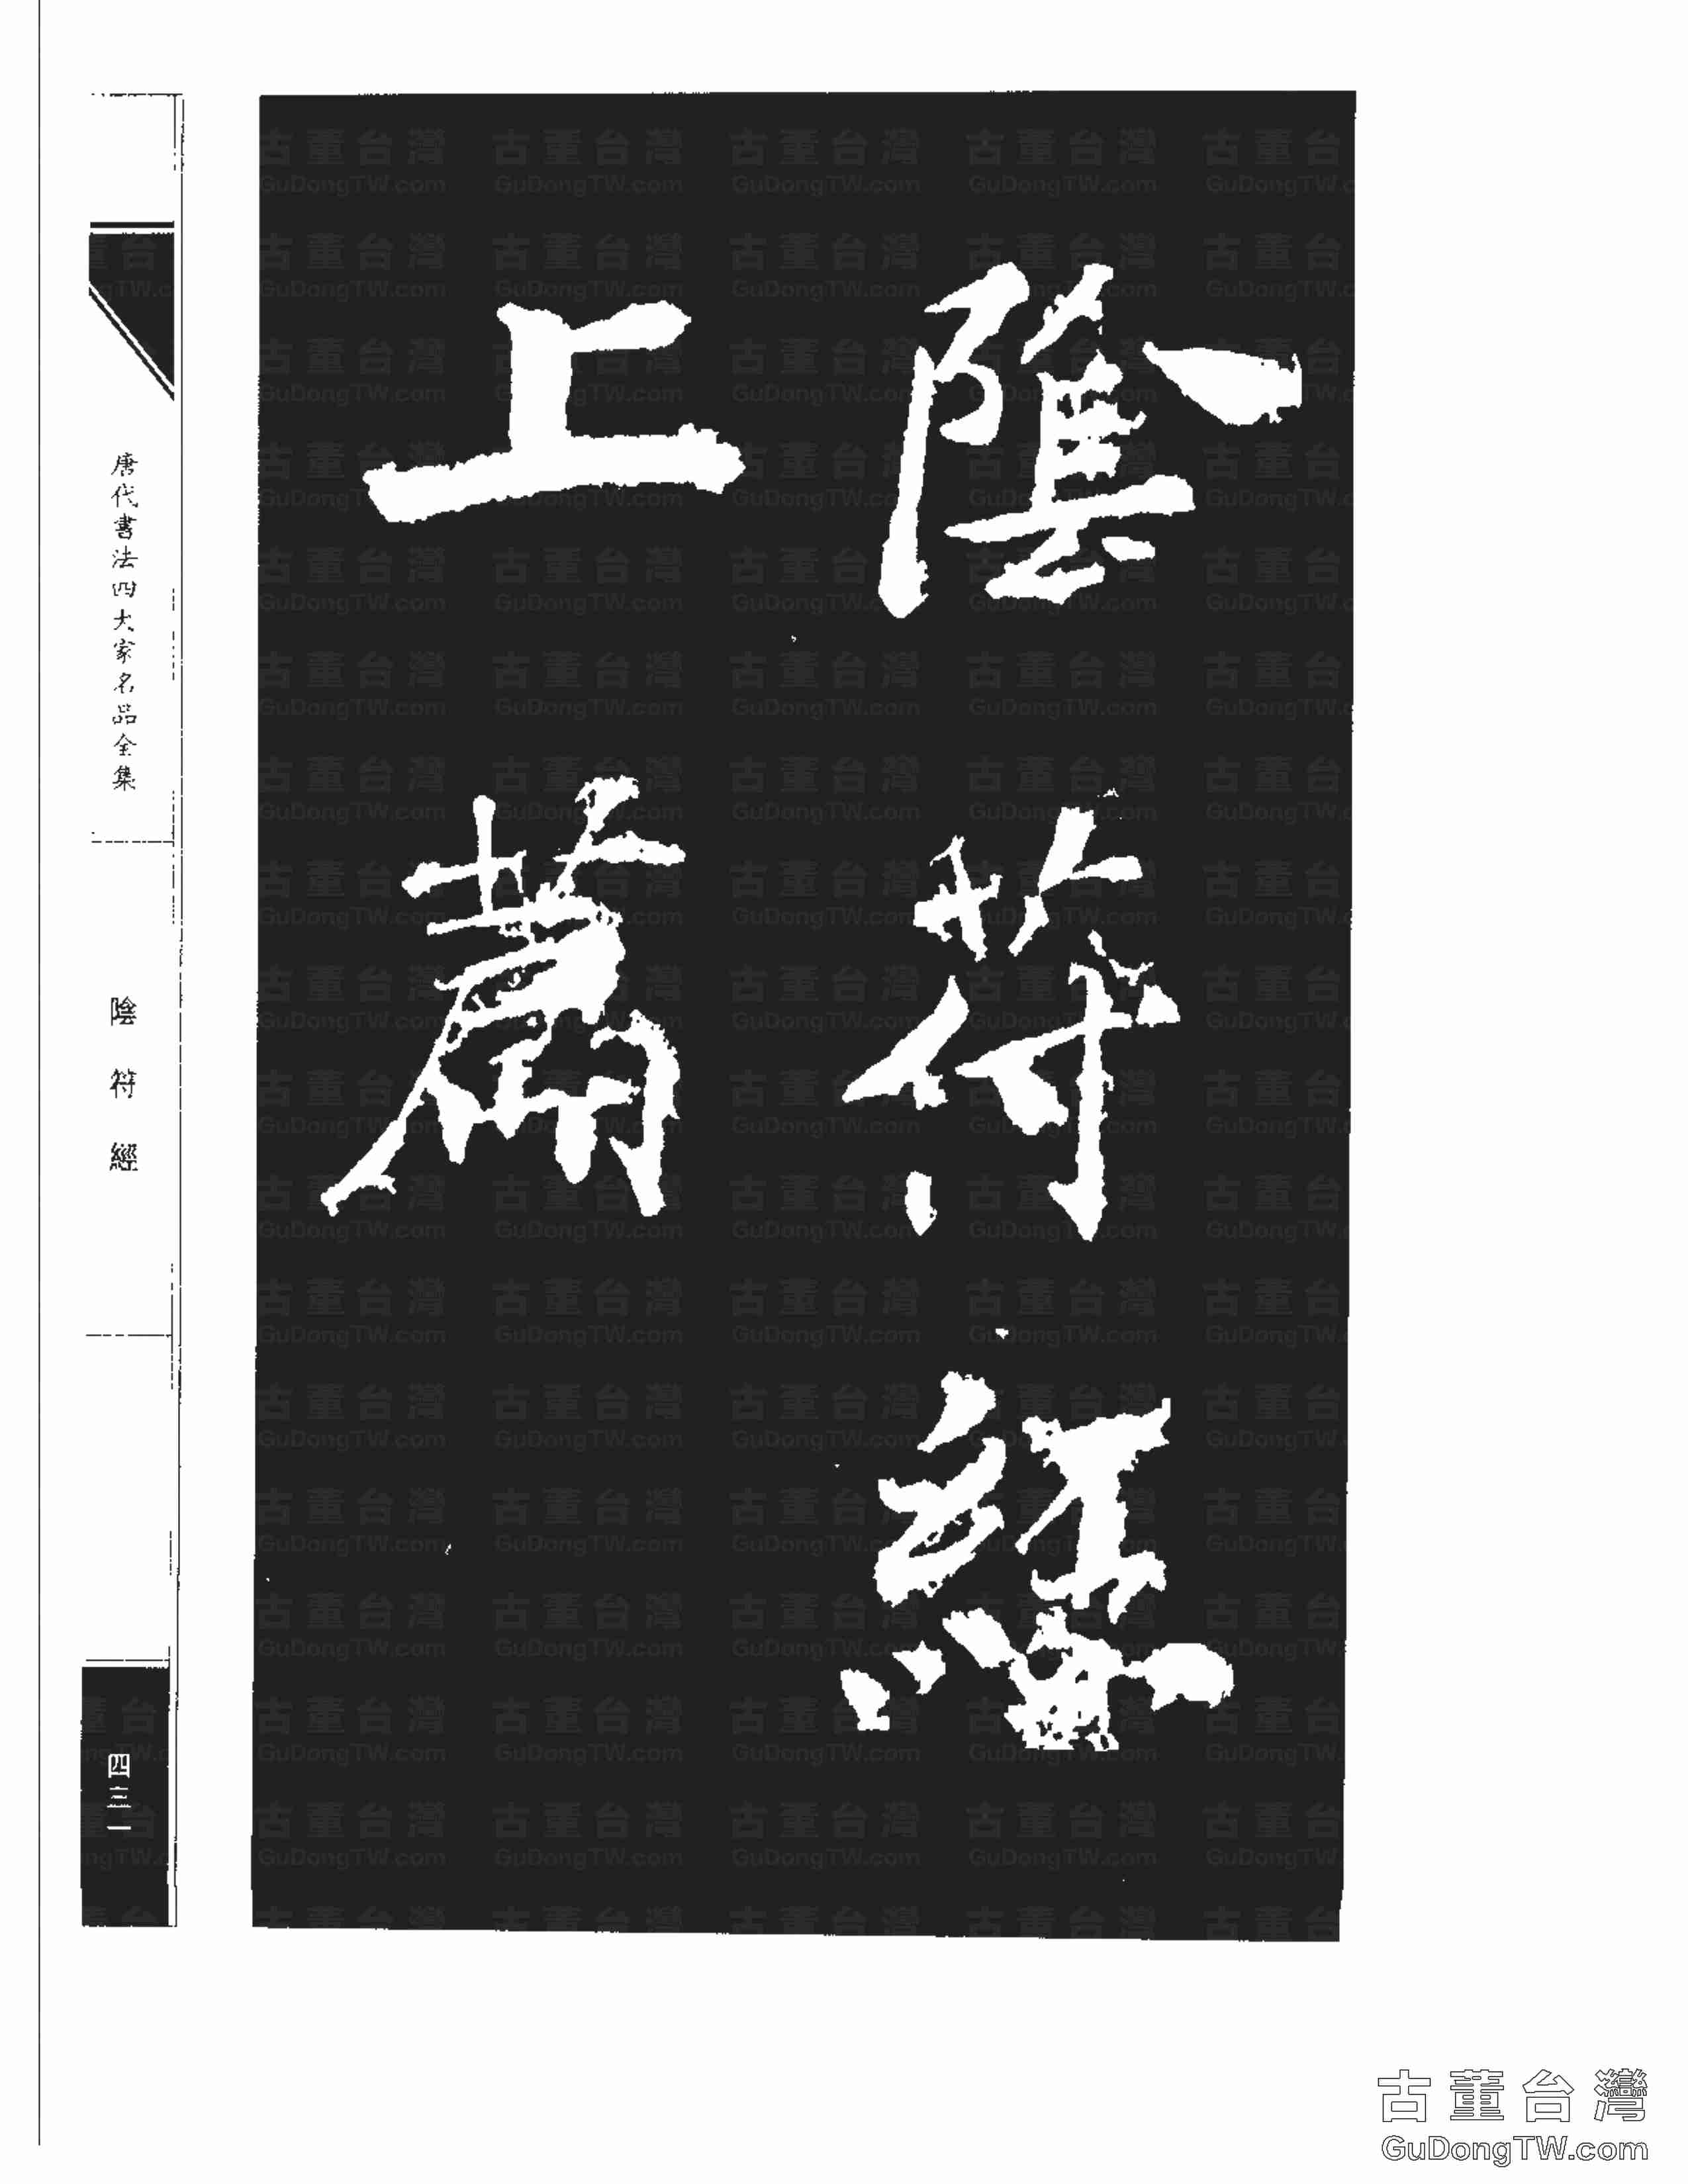 陰符經
上篇
唐代書法四大家名品全集
陰符經
四三一
古董台灣
GuDongTW.com